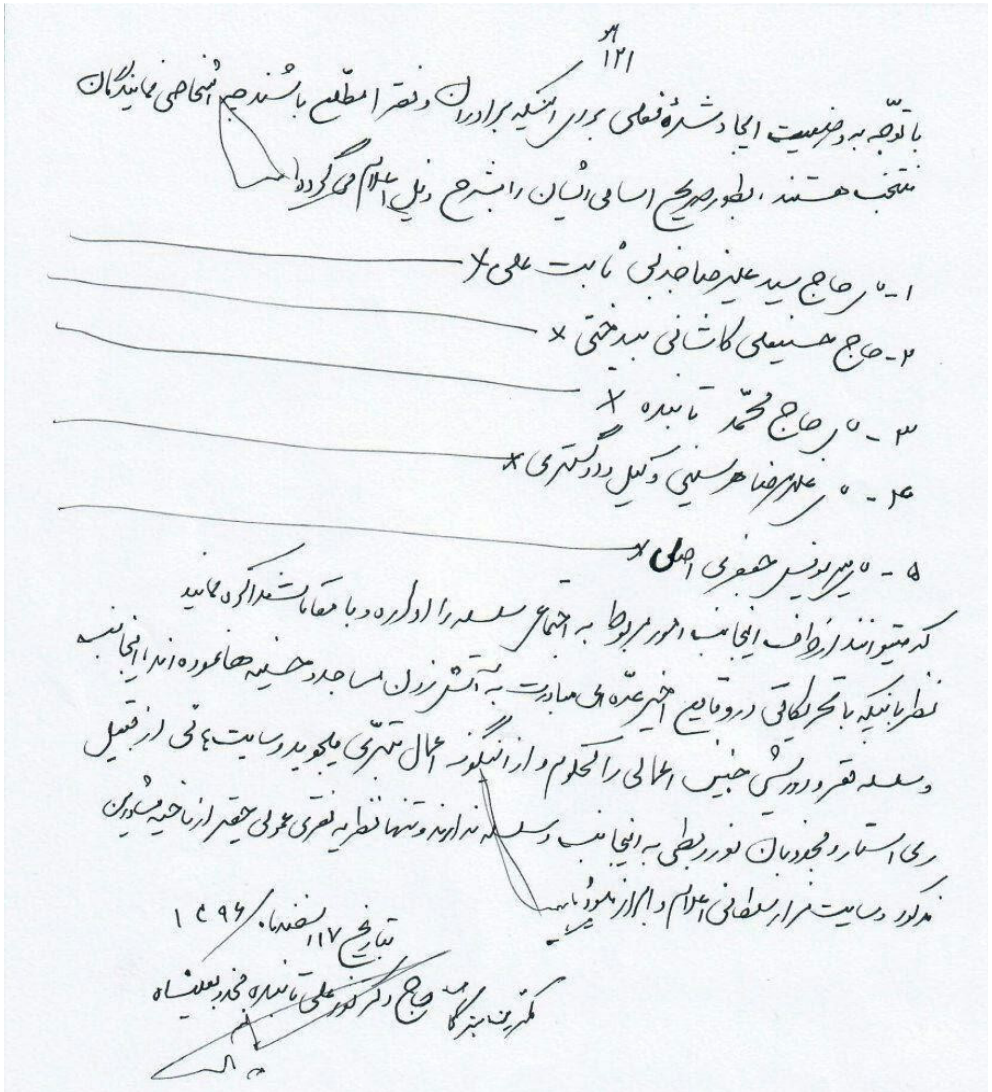 هو
۱۲۱
با توجّه به وضعیت ایجاد شدهٔ فعلی برای اینکه برادران و فقرا مطّلع باشند چه اشخاصی نمایندگان
منتخب هستند، بطور صریح اسامی ایشان را بشرح ذیل اعلام می‌گردد
۱- آقای حاج سید علیرضا جذبی ثابت علی ×
۲- حاج حسینعلی کاشانی بیدختی ×
۳- آقای حاج محمّد تابنده ×
۴- آقای علیرضا هرسینی وکیل دادگستری ×
۵- آقای میریونس جعفری اصل ×
که میتوانند از طرف اینجانب امور مربوط به اجتماعی سلسله را اداره و با مقامات مذاکره نمایند
نظر باینکه با تحریکاتی در وقایع اخیر عدّه‌ای مبادرت به آتش زدن مساجد و حسینیه‌ها نموده‌اند، اینجانب
و سلسله فقر و درویشی چنین اعمالی را محکوم و از اینگونه اعمال تبرّی میجوید و سایت‌هائی از قبیل
و مجذوبان نور ربطی به اینجانب و سلسله ندارند و تنها نظریه فقری حقیر از ناحیه مشاورین
مذکور و سایت مزار سلطانی اعلام و ابراز
بتاریخ ۱۷ اسفندماه/ ۱۳۹۶
حاج دکتر نورعلی تابنده مجذوبعلیشاه